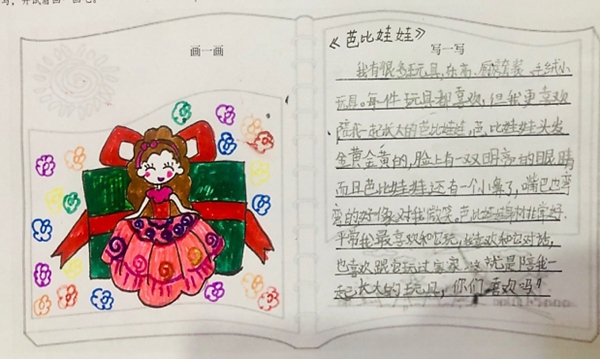 写，并试着画一画吧。
画一画
《芭比娃娃》
写一写
我有很多玩具，东高、厨房套装、毛绒小
玩具。每一件玩具都喜欢，但我更喜欢
陪我一起成长的芭比娃娃，芭比娃娃头发
金黄金黄的，脸上有一双明亮的眼睛
而且芭比娃娃还有一个小鼻子，嘴巴也弯
弯的好像对我微笑。芭比娃娃身材非常好
平常我最喜欢和它玩，我喜欢和它对话，
也喜欢跟它玩过家家，这就是陪我一
起长大的玩具，你们喜欢吗？